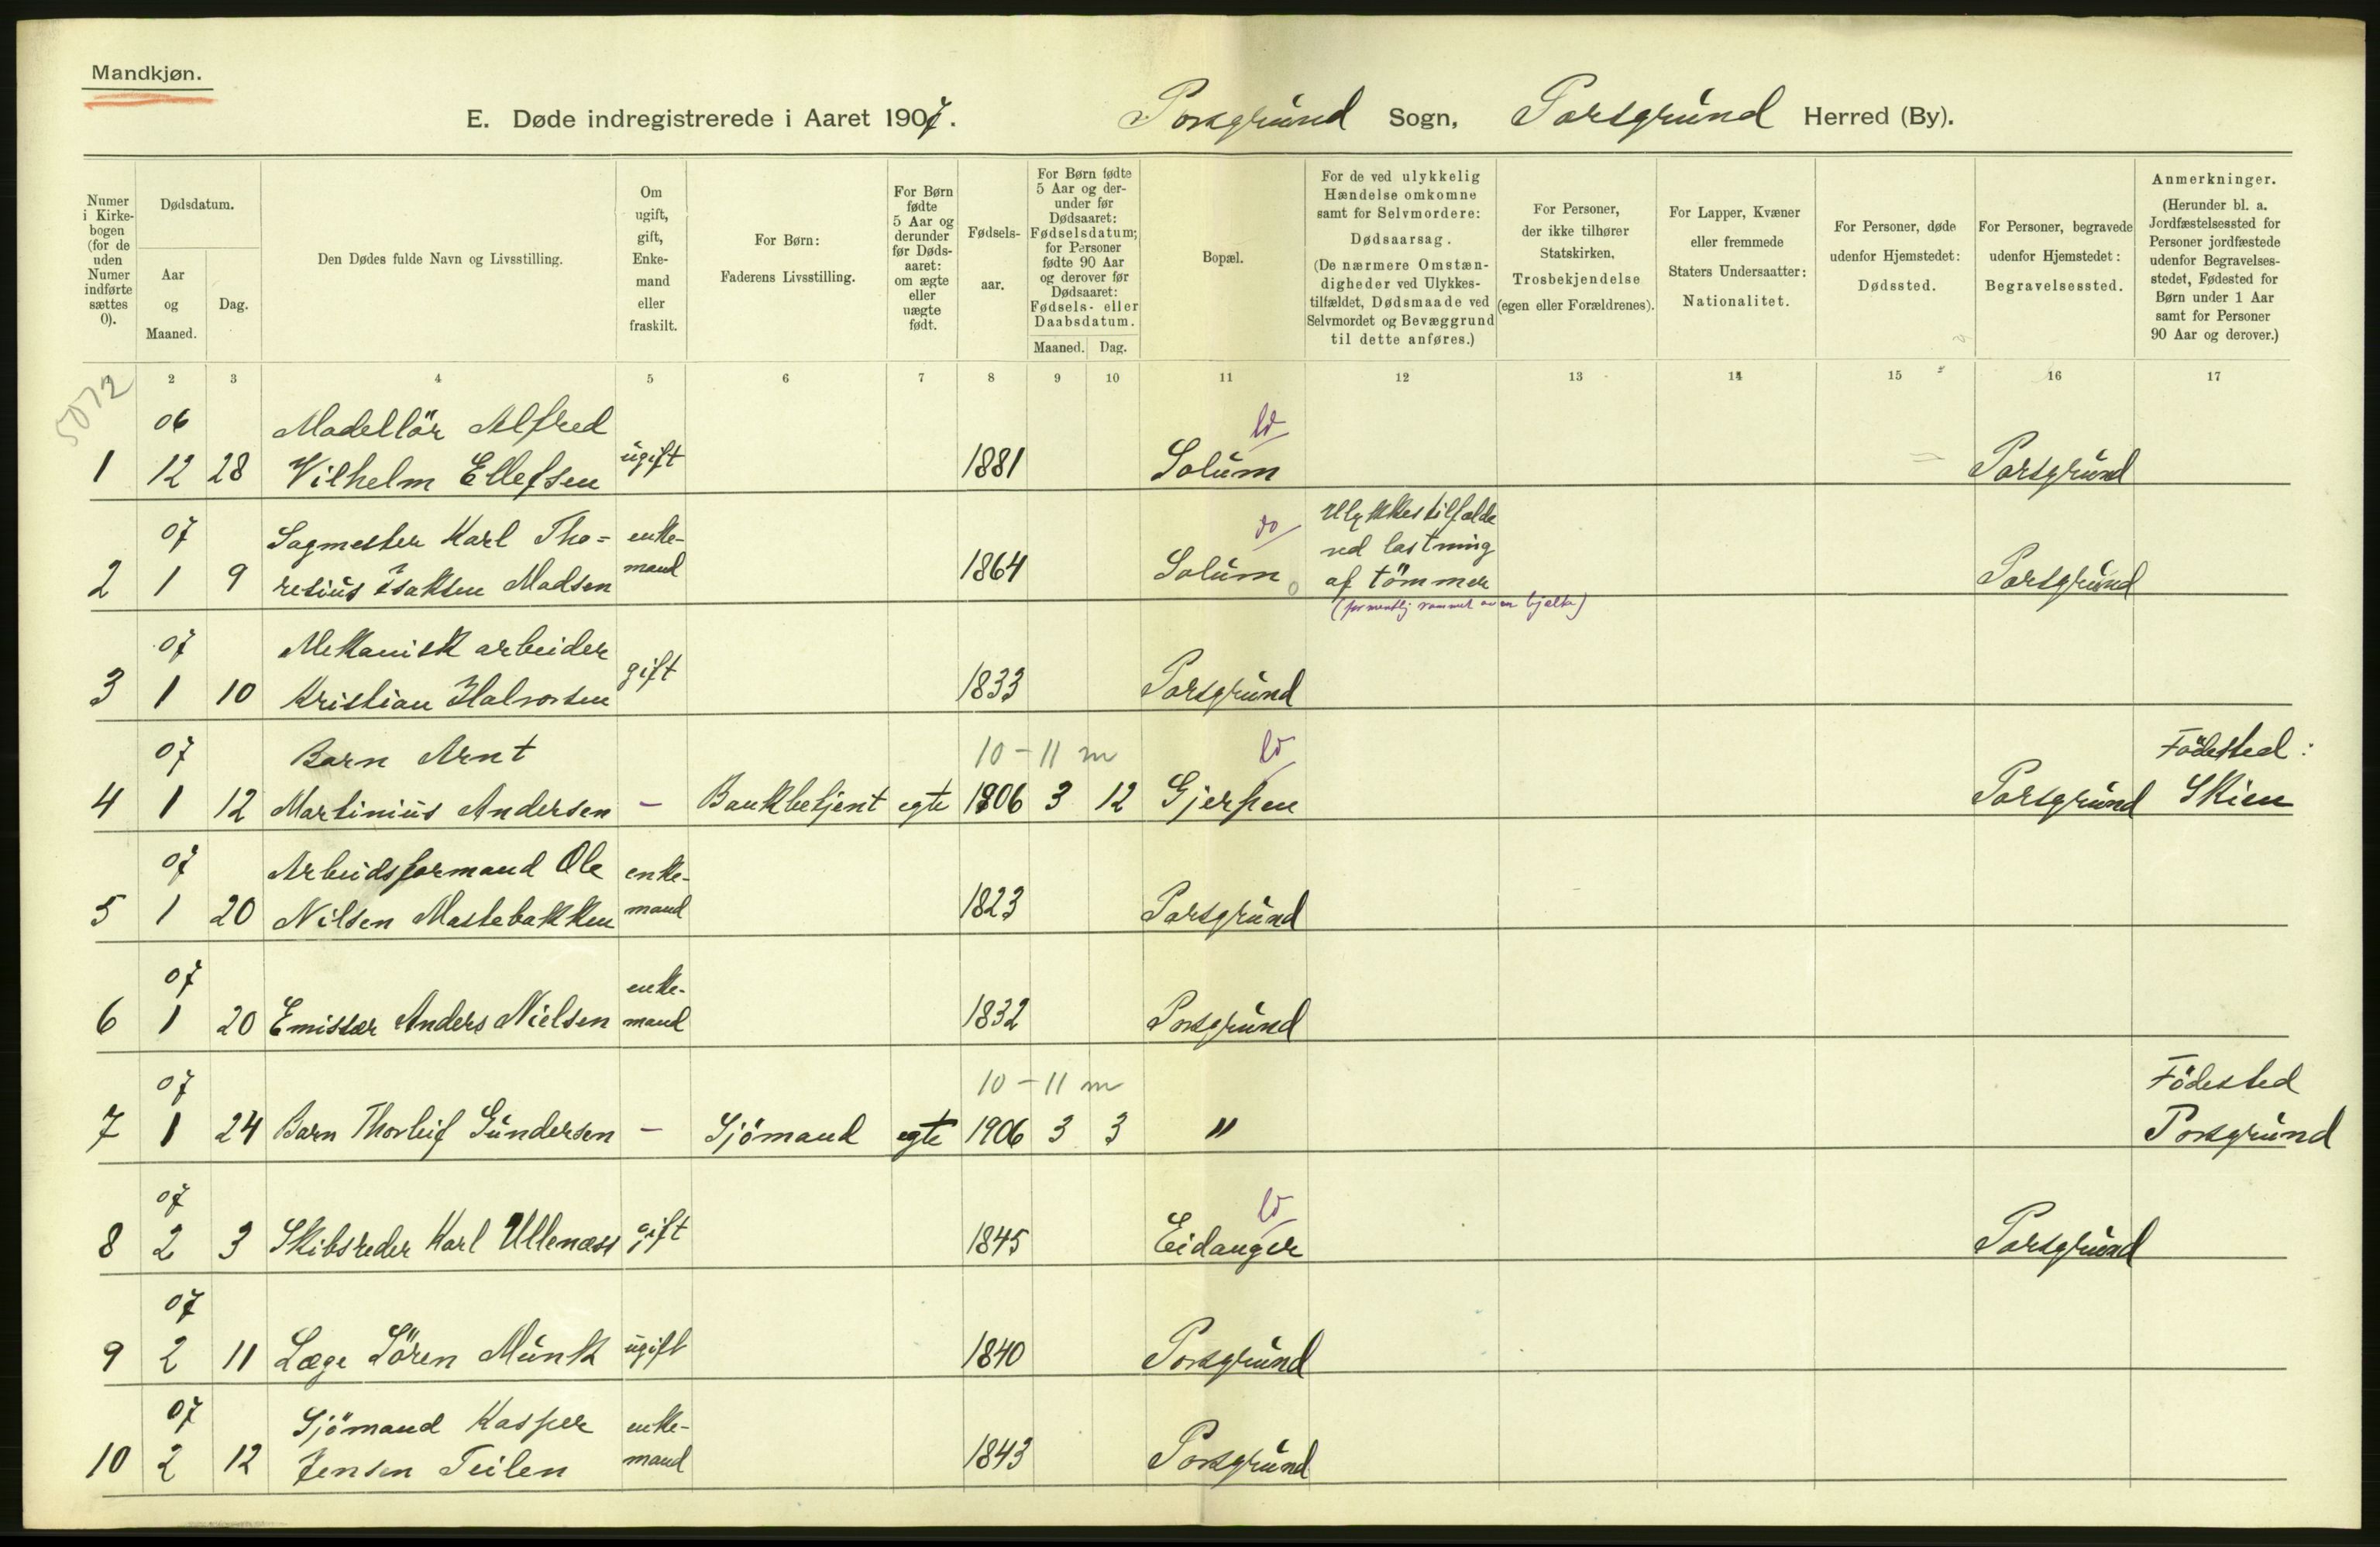 Mandkjøn.
E. Døde indregistrerede i Aaret 1907. Porsgrund Sogn, Porsgrund Herred (By).
Numer i Kirkebogen (for de uden Numer indførte sættes 0).
Dødsdatum.
Aar og Maaned.
Dag.
Den Dødes fulde Navn og Livsstilling.
Om ugift, gift, Enkemand eller fraskilt.
For Børn: Faderens Livsstilling.
For Børn fødte 5 Aar og derunder før Dødsaaret: om ægte eller uægte født.
Fødselsaar.
For Børn fødte 5 Aar og derunder før Dødsaaret: Fødselsdatum; for Personer fødte 90 Aar og derover før Dødsaaret: Fødsels- eller Daabsdatum.
Maaned. Dag.
Bopæl.
For de ved ulykkelig Hændelse omkomne samt for Selvmordere: Dødsaarsag. (De nærmere Omstændigheder ved Ulykkestilfældet, Dødsmaade ved Selvmordet og Bevæggrund til dette anføres.)
For Personer, der ikke tilhører Statskirken, Trosbekjendelse (egen eller Forældrenes).
For Lapper, Kvæner eller fremmede Staters Undersaatter: Nationalitet.
For Personer, døde udenfor Hjemstedet: Dødssted.
For Personer, begravede udenfor Hjemstedet: Begravelsessted.
Anmerkninger. (Herunder bl. a. Jordfæstelsessted for Personer jordfæstede udenfor Begravelsesstedet, Fødested for Børn under 1 Aar samt for Personer 90 Aar og derover.)
2 3 4 5 6 7 8 9 10 11 12 13 14 15 16 17
5072
06 Modellör Alfred
1 12 28 Vilhelm Ellefsen ugift 1881 Solum Porsgrund
07 Sagmester Karl Tho= enke- Ulykkestilfælde
ved lastning
2 1 9 resius Isaksen Madsen mand 1864 Solum af tömmer Porsgrund
07 Mekanisk arbeider
3 1 10 Kristian Halvorsen gift 1833 Porsgrund
07 Barn Arnt 10-11 m Födested:
4 1 12 Martinius Andersen - Bankbetjent egte 1906 3 12 Gjerpen Porsgrund Skien
07 Arbeidsformand Ole enke-
5 1 20 Nilsen Mastebakken mand 1823 Porsgrund
07 enke-
6 1 20 Emissær Anders Nielsen mand 1832 Porsgrund
07 10-11 m Födested
7 1 24 Barn Thorleif Gundersen - Sjömand egte 1906 3 3 " Porsgrund
07
8 2 3 Skibsreder Karl Ullenæss gift 1845 Eidanger Porsgrund
07
9 2 11 Læge Sören Munk ugift 1840 Porsgrund
07 Sjömand Kasper enke-
10 2 12 Jensen Teilen mand 1843 Porsgrund